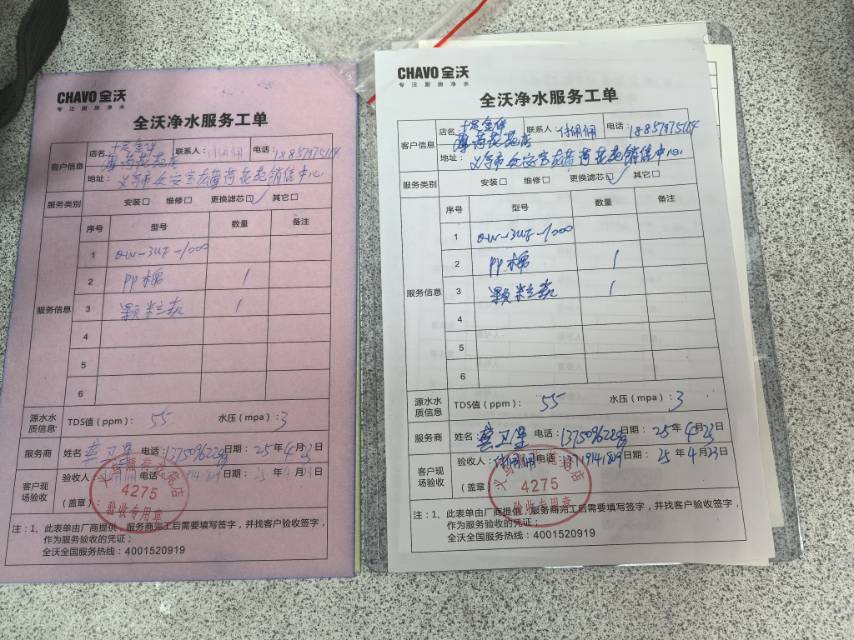 CHAVO 全沃
专注厨房净水
全沃净水服务工单
客户信息
店名：
联系人：付佩佩 电话：
地址：义乌市 销售中心
服务类别 安装□ 维修□ 更换滤芯□✓ 其它□
服务信息
序号 型号 数量 备注
1 -1000
2 PP棉 1
3 颗粒炭 1
4
5
6
源水水质信息 TDS值（ppm）： 55 水压（mpa）：3
服务商 姓名 电话： 日期：25年4月23日
客户现场验收 验收人： 日期：25年4月23日
（盖章）
4275
验收专用章
注：1、此表单由厂商提供，服务商完工后需要填写签字，并找客户验收签字，
作为服务验收的凭证；
全沃全国服务热线：4001520919
CHAVO 全沃
专注厨房净水
全沃净水服务工单
客户信息
店名：
联系人：付佩佩 电话：
地址：义乌市 销售中心
服务类别 安装□ 维修□ 更换滤芯□✓ 其它□
服务信息
序号 型号 数量 备注
1 -1000
2 PP棉 1
3 颗粒炭 1
4
5
6
源水水质信息 TDS值（ppm）： 55 水压（mpa）：3
服务商 姓名 电话： 日期：25年4月23日
客户现场验收 验收人：付佩佩 日期：25年4月23日
（盖章）
4275
验收专用章
注：1、此表单由厂商提供，服务商完工后需要填写签字，并找客户验收签字，
作为服务验收的凭证；
全沃全国服务热线：4001520919